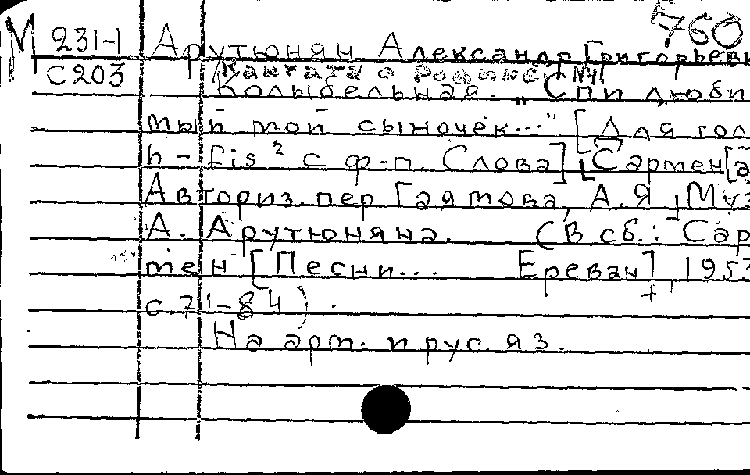 760
М 231-1 Арутюнян Александр Григорьеви
С203 Кантата о Родине, №4
Колыбельная. „Спи люби
мый мой сыночек..." [Для гол
h-fis² с ф-п. Слова] [Сармен[а
Авториз. пер Гаямова, А.Я., Муз
А. Арутюняна. (В сб.: Сар
мен [Песни... Ереван], 1953
с. 71-84).
На арм. и рус. яз.